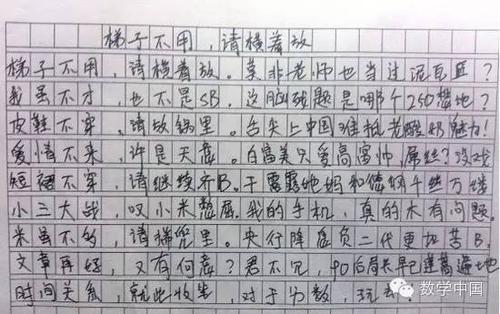 梯子不用，请横着放
梯子不用，请横着放。莫非老师也当过泥瓦匠？
我虽不才，也不是SB。这脑残题是哪个250想地？
皮鞋不穿，请放锅里。舌尖上中国难抵老酸奶魅力！
爱情不来，许是天意。白富美只爱高富帅，屌丝？没戏
短裙不穿，请继续齐B。干露露她妈和您纲千丝万缕
小三大战，叹小米憋屈。我的手机，真的木有问题
米虽不多，请揣兜里。央行降息负二代更加苦B。
文章再好，又有何意？君不见，90后局长早已遭离遍地
时间关系，就此收笔，对于分数，玩去
数学中国